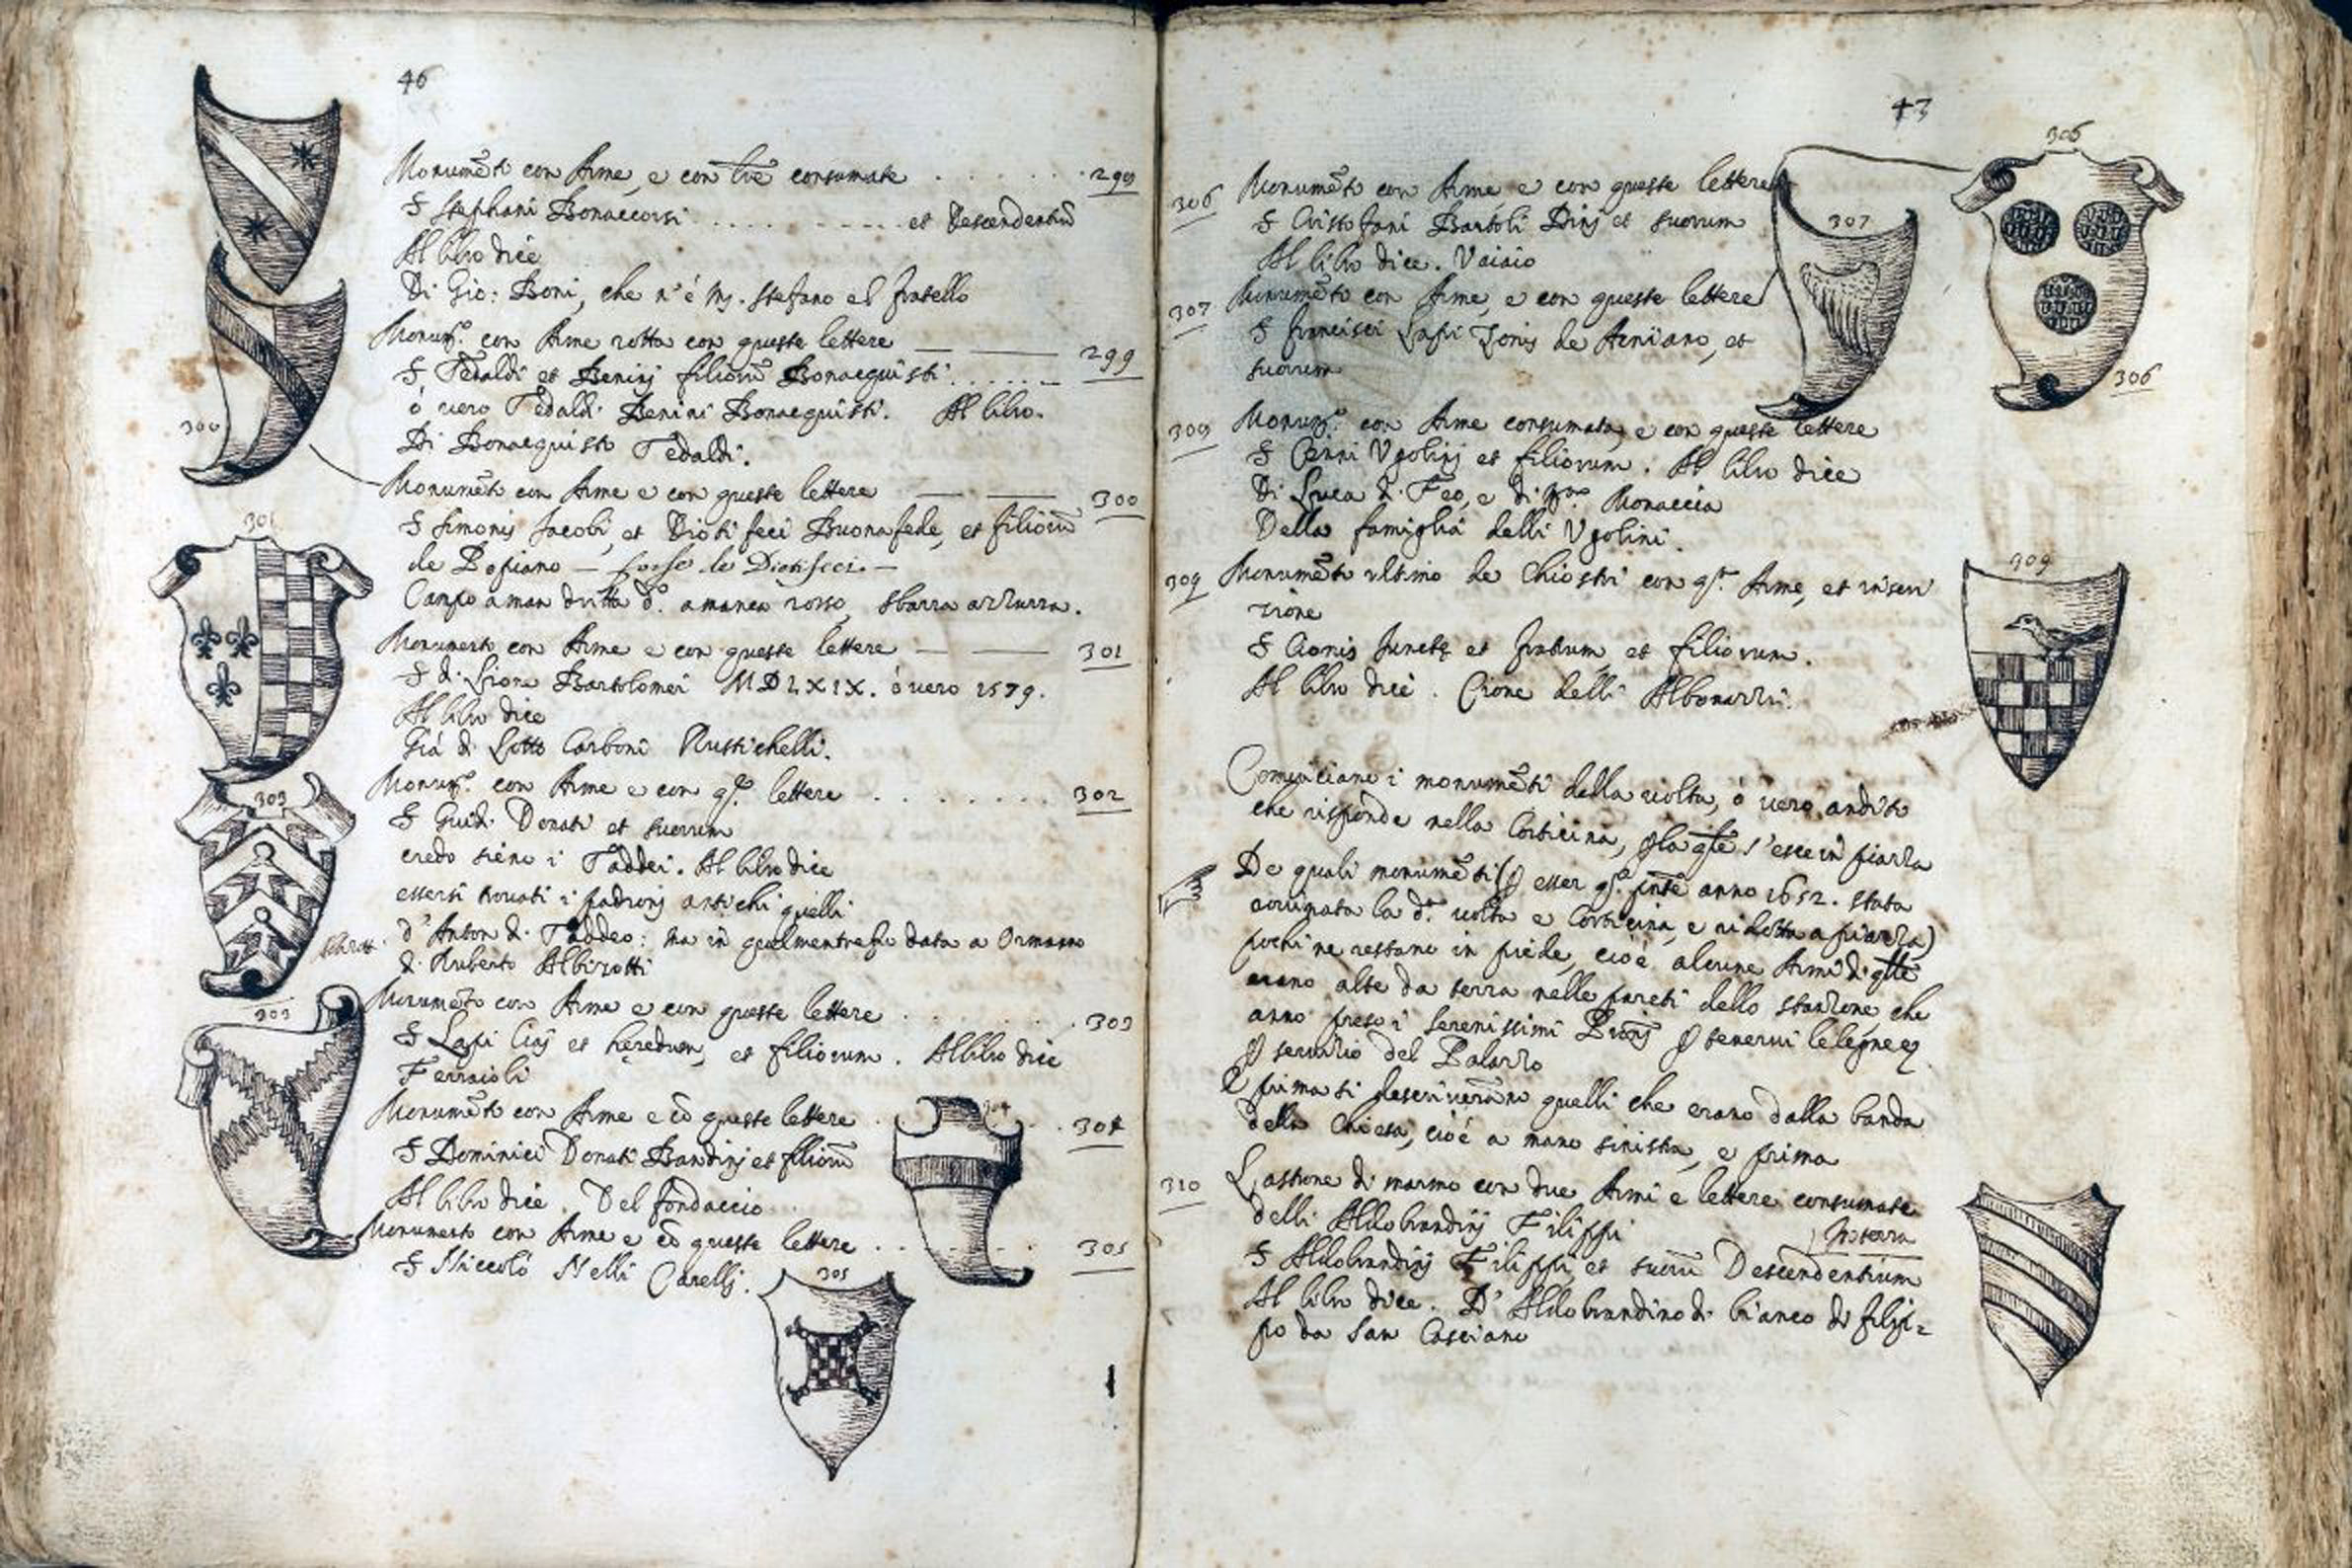 46
Monumẽto con Arme, e con lr̃e consumate . . . . . . 298
S Stephani Bonaccorsi . . . . . . . . . . et Descendentiũ
Al libro dice
Di Gio: Boni, che n'é mʃ. Stefano el fratello
Monumto. con Arme rotta con queste lettere — — 299
S Tedaldi et Beninj filiorũ Bonaequisti . . . . . .
ó vero Tedaldi Benini Bonaequisti. Al libro.
Di Bonaequisto Tedaldi.
300
Monumẽto con Arme e con queste lettere — — 300
S Simonis Jacobi, et Dioti feci Buonafede, et filiorũ
de Pofiano — forse de Diotifeci. —
Campo a man dritta d'o. a manca rosso, sbarra azzurra.
301
Monumento con Arme e con queste lettere — — 301
S di Lione Bartolomei MDLXIX. óvero 1579.
Al libro dice
Giá di Lotto Carboni Rustichelli.
Monumto. con Arme e con qte. lettere . . . . . . . 302
303
S Guidi Donati et suorum
credo sieno i Taddei. Al libro dice
essersi trovati i padronj antichi quelli
d'Anton di Taddeo: ma in qualmentre fu data a Ormanno
di Ruberto Albizotti
303
Monumẽto con Arme e con queste lettere . . . . . . 303
S Lapi Ciaj et heredum, et filiorum. Al libro dice
Ferraioli
Monumẽto con Arme e cõ queste lettere . 304 . 304
S Dominici Donati Bandinj et filiorũ
Al libro dice. Del fondaccio
Monumento con Arme e cõ queste lettere . . . . . . 305
S Niccoló Nelli Carellj.
305
47
306
306 Monumẽto con Arme, e con queste lettere
S Cristofani Bartoli Dinj et suorum
Al libro dice. Vaiaio
307
306
307 Monumẽto con Arme, e con queste lettere
S francisci Lapi Zonis de Arniano, et
suorum
308 Monumto. con Arme consumata, e con queste lettere
S Cenni Vgolinj et filiorum. Al libro dice
Di Luca di Feo, e di Monaccia
Della famiglia delli Vgolini.
309
309 Monumẽto vltimo de Chiostri con qta. Arme, et inscri
zione
S Cionis Junctę et fratrum et filiorum.
Al libro dice. Cione delli Albonazzi.
Cominciano i monumẽti della volta, ó vero andito
che risponde nella Corticina, p la qle s'esce in piazza
De quali monumẽti (p esser qto. pnte anno 1652. stata
rovinata la dta. volta e Corticina, e ridotta a piazza)
pochi ne restano in piede, cioé alcune Armi di qlle
erano alte da terra nelle pareti dello stanzone, che
anno preso i Serenissimi Pronj p tenervi le legne p
p servizio del Palazzo
E prima si descriverãno quelli che erano dalla banda
della Chiesa, cioé a mano sinistra, e prima
310 Lastrone di marmo con due Armi e lettere consumate
delli Aldobrandinj Filippi
In terra
S Aldobrandinj Filippi, et suorũ Descendentium
Al libro dice. D'Aldobrandino di bianco di filip=
po da San Casciano